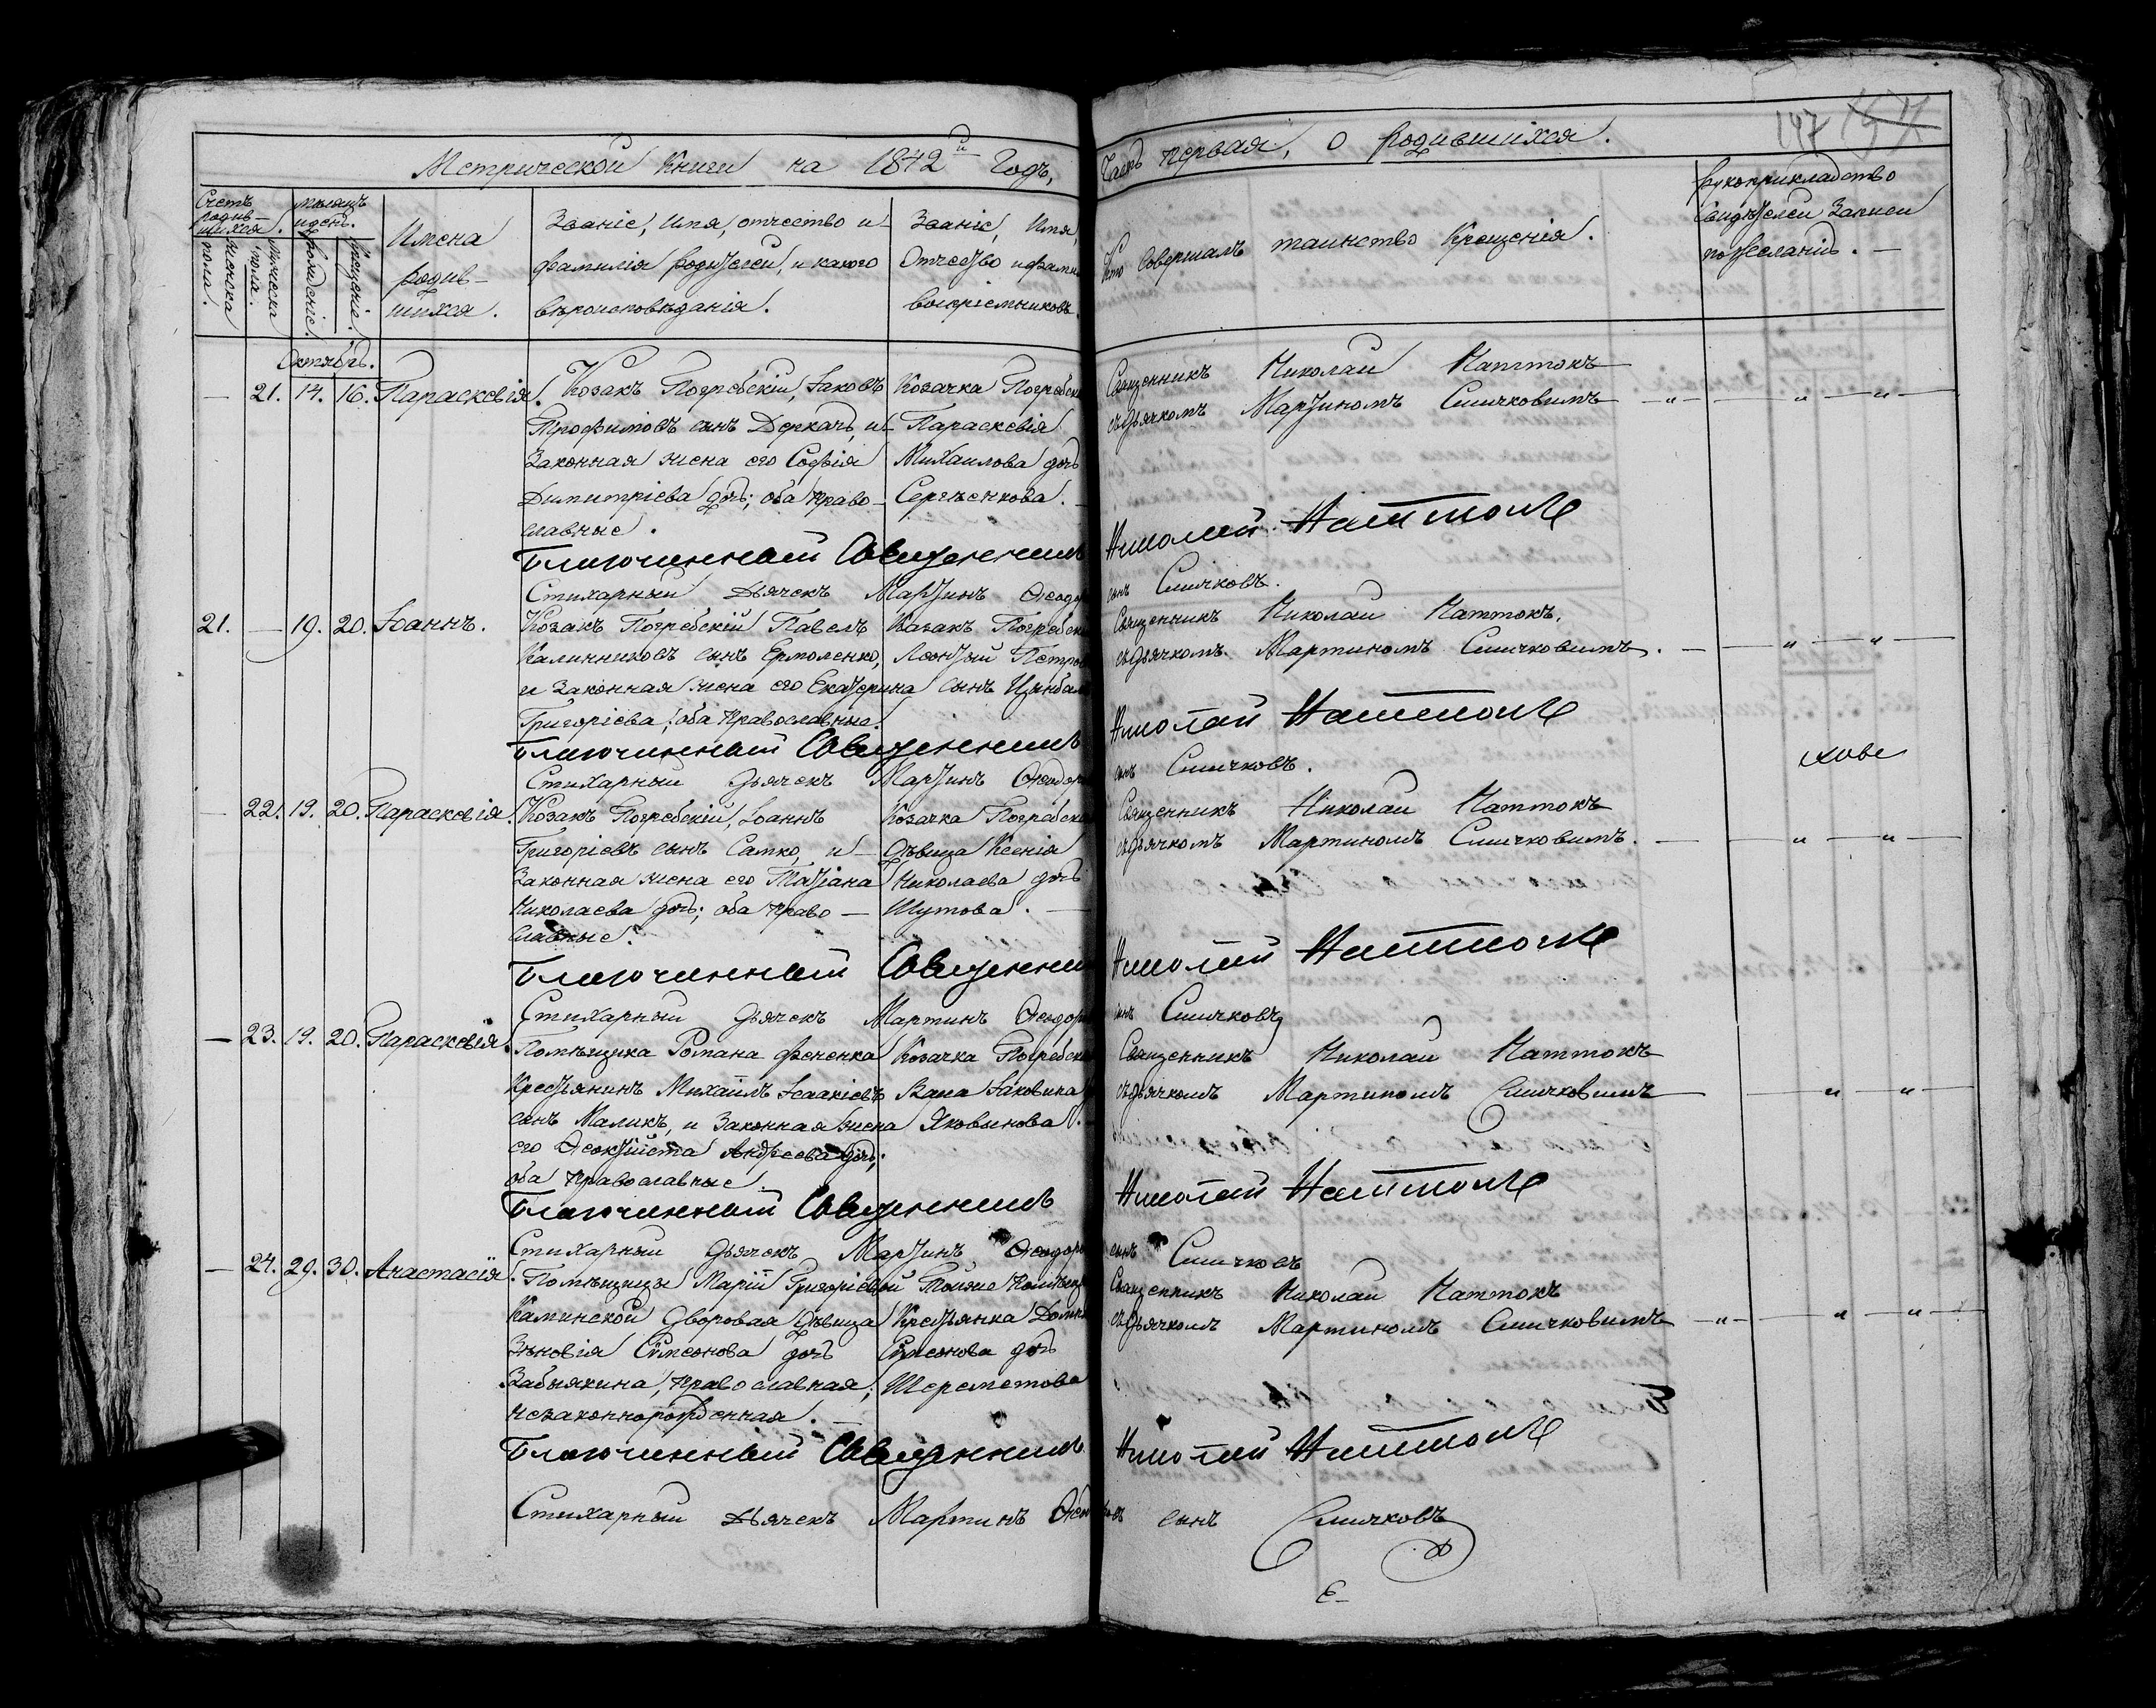 Метрической Книги на 1842й Годъ,
Часть первая, о родившихся.
147
Счетъ родив-шихся.
мѣсяцъ и день.
Имена родив-шихся.
Званіе, Имя, отчество и фамилія родителей, и какого вѣроисповѣданія.
Званіе, Имя, Отчество и фами воспріемниковъ.
Кто совершалъ таинство Крещенія.
Рукоприкладство свидѣтелей Записи по желанію. —
женска пола.
рожденіе.
крещеніе.
Октябрь.
— 21. 14. 16. Параскевія.
Козакъ Погребскій, Іаковъ
Трофимовъ сынъ Деркачъ, и
Законная жена его Софія
Димитріева дочь; оба Право-
славные.
Козачка Погребска
Параскевія
Михаилова дочь
Сергѣенкова. —
Священникъ Николай Наттокъ
съ дьячкомъ Мартиномъ Смичковимъ
Благочинный Священникъ Николай Наттокъ
Стихарный Дьячекъ Мартинъ Ѳеодор
сынъ Смичковъ.
21. — 19. 20. Іоаннъ.
Козакъ Погребскій Павелъ
Калинниковъ сынъ Ермоленко,
и Законная жена его Екатерина
Григоріева; оба Православные.
Казакъ Погребск
Леонтий Петров
сынъ Цимбал
Священникъ Николай Наттокъ,
съ дьячкомъ Мартиномъ Смичковимъ.
Благочинный Священникъ Николай Наттокъ
Стихарный дьячекъ Мартинъ Ѳеодор
сынъ Смичковъ.
— 22. 19. 20. Параскевія.
Козакъ Погребскій, Іоаннъ
Григоріевъ сынъ Сапко, и —
Законная жена его Татіана
Николаева дочь; оба Право —
славные.
Козачка Погребска
дѣвица Ксенія
Николаева дочь
Шутова. —
Священникъ Николай Наттокъ
съ дьячкомъ Мартиномъ Смичковимъ.
Благочинный Священни Николай Наттокъ
Стихарный дьячекъ Мартинъ Ѳеодор
сынъ Смичковъ
— 23. 19. 20. Параскевія.
Помѣщика Романа Фененка
Крестьянинъ Михаилъ Ісаакіевъ
сынъ Маликъ, и Законная жена
его Ѳеоктиста Андреева дочь;
оба Православные.
Козачка Погребска
Яковынова.
Священникъ Николай Наттокъ
съ дьячкомъ Мартиномъ Смичковимъ
Благочинный Священникъ Николай Наттокъ
Стихарный дьячекъ Мартинъ Ѳеодор
сынъ Смичковъ
— 24. 29. 30. Анастасія.
Помѣщицы Маріи Григоріевой
Каминской Дворовая дѣвица
Зѣновія Симеонова дочь
Забіякина, Православная;
незаконнорожденная.
Тойже Помѣщи
Крестьянка Домн
Симеонова дочь
Шереметова
Священникъ Николай Наттокъ
съ дьячкомъ Мартиномъ Смичковимъ
Благочинный Священникъ Николай Наттокъ
Стихарный Дьячекъ Мартинъ Ѳео
сынъ Смичковъ